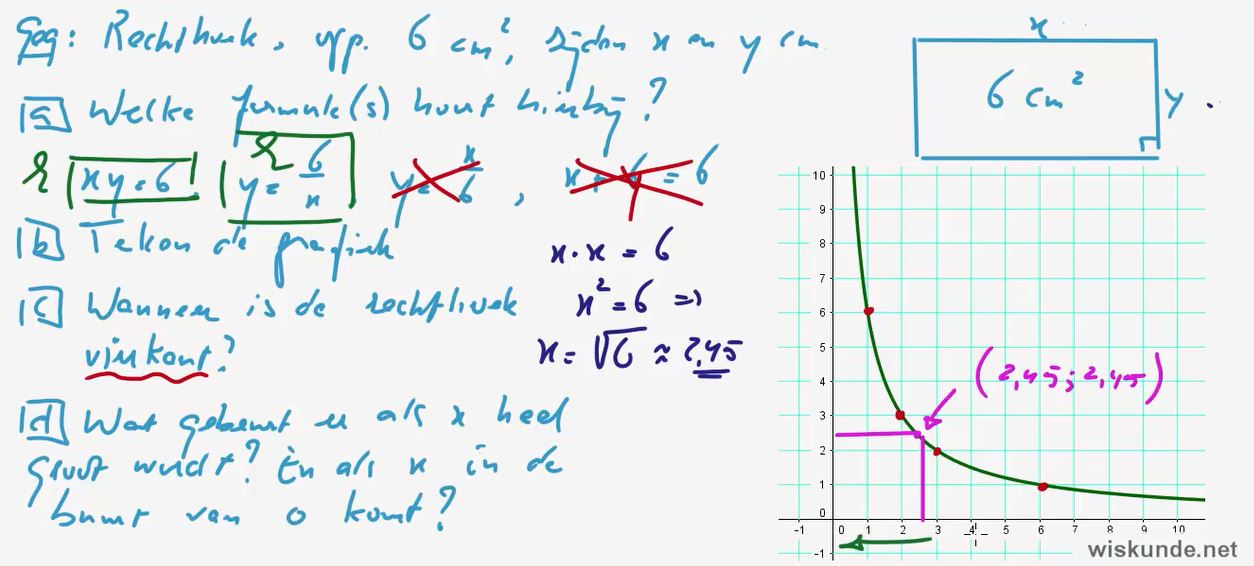 Geg: Rechthoek, opp. 6 cm², zijden x en y cm
x
6 cm²
y
a Welke formule(s) hoort hierbij?
R xy = 6
R y = 6/x
y = x/6 , x + y = 6
b Teken de grafiek
x · x = 6
x² = 6 ⇒
x = √6 ≈ 2,45
c Wanneer is de rechthoek
vierkant?
d Wat gebeurt er als x heel
groot wordt? En als x in de
buurt van 0 komt?
(2,45 ; 2,45)
10
9
8
7
6
5
4
3
2
1
0
-1
-1 0 1 2 3 4 5 6 7 8 9 10
wiskunde.net